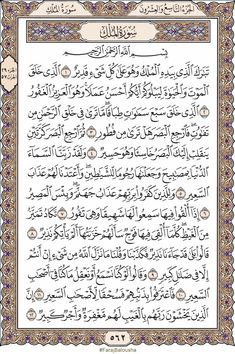 الجزء التاسع والعشرون
سورة الملك
سورة الملك
بسم الله الرحمن الرحيم
تبرك الذي بيده الملك وهو على كل شيء قدير ١ الذي خلق
الموت والحيوة ليبلوكم أيكم أحسن عملا وهو العزيز الغفور
٢ الذي خلق سبع سموت طباقا ما ترى في خلق الرحمن من
تفوت فارجع البصر هل ترى من فطور ٣ ثم ارجع البصر كرتين
ينقلب إليك البصر خاسئا وهو حسير ٤ ولقد زينا السماء
الدنيا بمصبيح وجعلنها رجوما للشيطين وأعتدنا لهم عذاب
السعير ٥ وللذين كفروا بربهم عذاب جهنم وبئس المصير
٦ إذا ألقوا فيها سمعوا لها شهيقا وهي تفور ٧ تكاد تميز
من الغيظ كلما ألقي فيها فوج سألهم خزنتها ألم يأتكم نذير ٨
قالوا بلى قد جاءنا نذير فكذبنا وقلنا ما نزل الله من شيء إن أنتم
إلا في ضلل كبير ٩ وقالوا لو كنا نسمع أو نعقل ما كنا في أصحب
السعير ١٠ فاعترفوا بذنبهم فسحقا لأصحب السعير ١١ إن
الذين يخشون ربهم بالغيب لهم مغفرة وأجر كبير ١٢
٥٦٢
#FarajBalousha